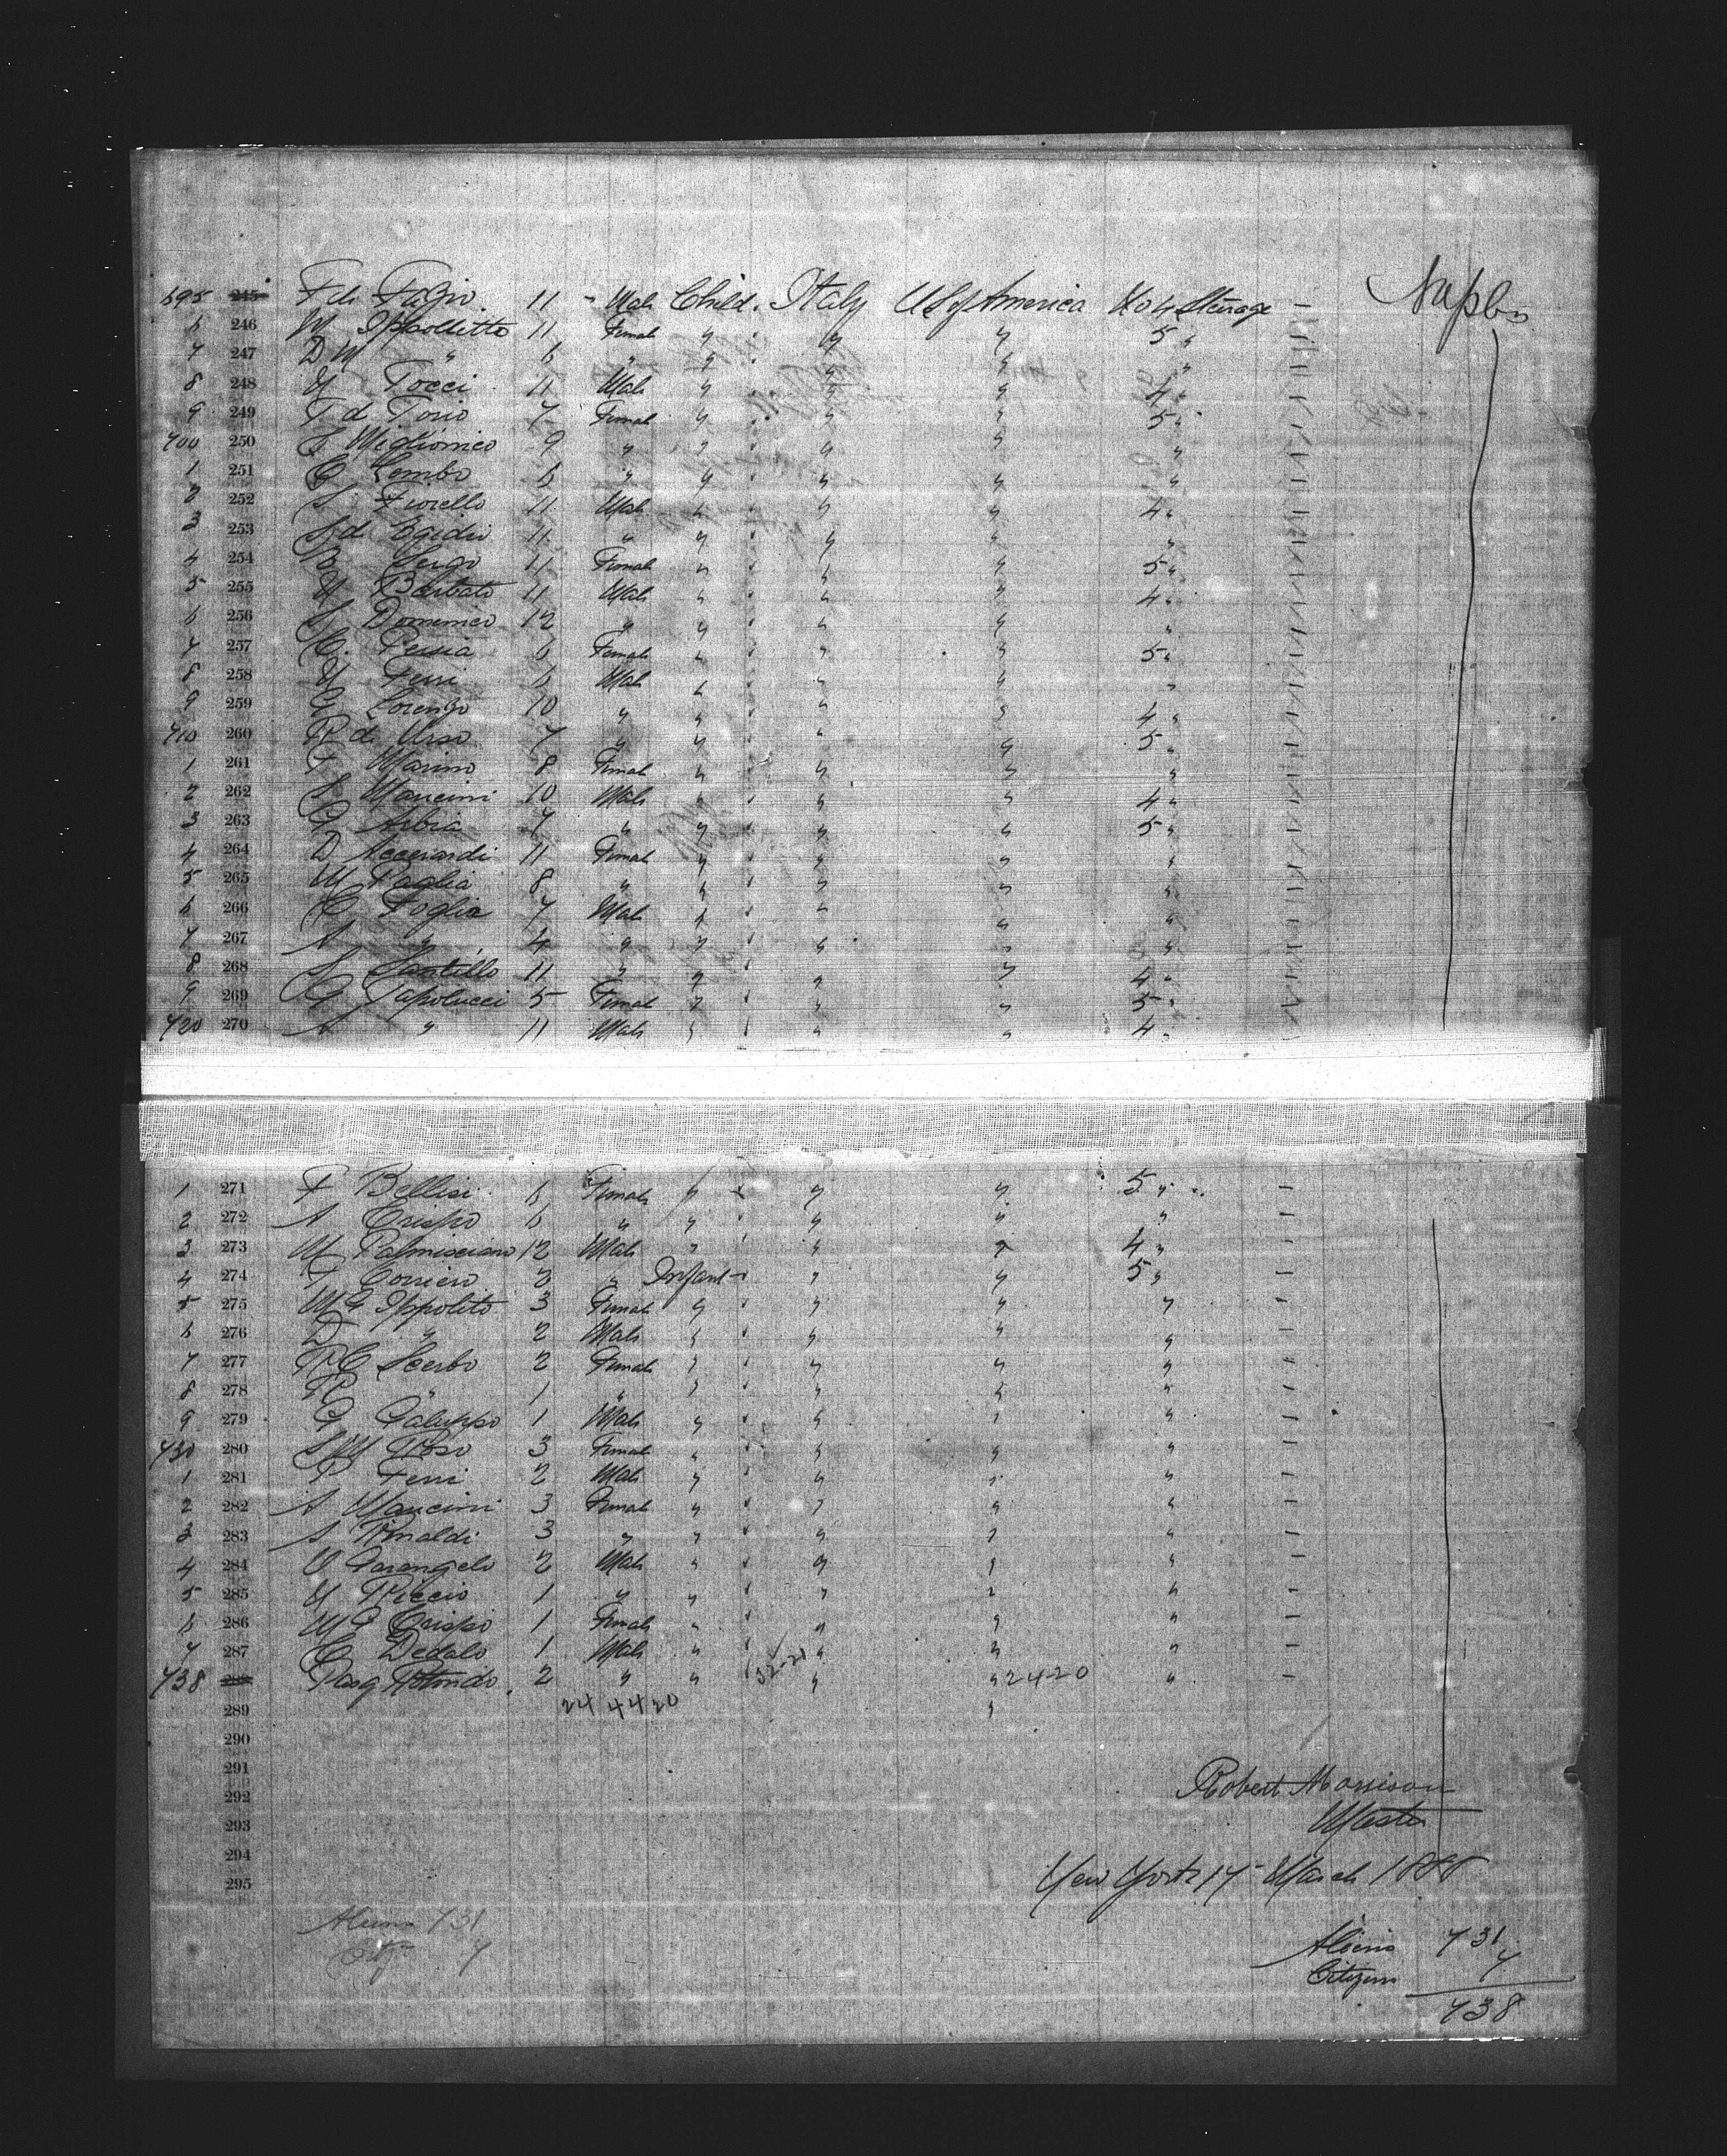 695 245 F di Fazio 11 - Male Child. Italy US of America No 4 Steerage - Naples
6 246 M Ippollitto 11 Female " " " 5 " -
7 247 D M " 6 " " " " " -
8 248 M Tocci 11 Male " " " 4 " -
9 249 F d Torio 7 Female " " " 5 " -
700 250 F Miglionico 9 " " " " " -
1 251 G Lembo 6 " " " " " -
2 252 S Fiorello 11 Male " " " 4 " -
3 253 S d Egidio 11 " " " " " -
4 254 Sergo 11 Female " " " 5 " -
5 255 M Barbato 11 Male " " " 4 " -
6 256 S Domenico 12 " " " " " -
7 257 C. Persia 6 Female " " " 5 " -
8 258 M Ferri 6 Male " " " " -
9 259 G Lorenzo 10 " " " " 4 " -
710 260 R d Urso 7 " " " " 5 " -
1 261 F Marino 8 Female " " " " -
2 262 S Mancini 10 Male " " " 4 " -
3 263 G Arbia 7 " " " " 5 " -
4 264 D Acciardi 11 Female " " " " -
5 265 M Paglia 8 " " " " " -
6 266 C Foglia 7 Male " " " " -
7 267 A " 4 " " " " " -
8 268 S Santillo 11 " " " " 4 " -
9 269 G Tapolucci 5 Female " " " 5 " -
720 270 A " 11 Male " " " 4 " -
1 271 F Bellisi 6 Female " " " 5 " -
2 272 A Crispo 6 " " " " " -
3 273 M Palmisciano 12 Male " " " 4 " -
4 274 F Corriero 3 " Infant " " 5 " -
5 275 M G Ippolito 3 Female " " " " -
6 276 D " 2 Male " " " " -
7 277 R C Scerbo 2 Female " " " " -
8 278 R " 1 " " " " " -
9 279 G Galuppo 1 Male " " " " -
730 280 S M Roso 3 Female " " " " -
1 281 P Ferri 2 Male " " " " -
2 282 A Mancini 3 Female " " " " -
3 283 A Rinaldi 3 " " " " " -
4 284 V Parangelo 2 Male " " " " -
5 285 M Riccio 1 " " " " " -
6 286 M G Crispo 1 Female " " " " -
7 287 C Dedalo 1 Male " " " " -
738 288 Pasq Rotundo 2 " " 32-21 " " 24-20 " -
289 24 44 20 "
290
291
292 Robert Morrison
293 Master
294
295 New York 17 March 1888
Aliens 731
Citz 7
Aliens 731
Citizens 7
738